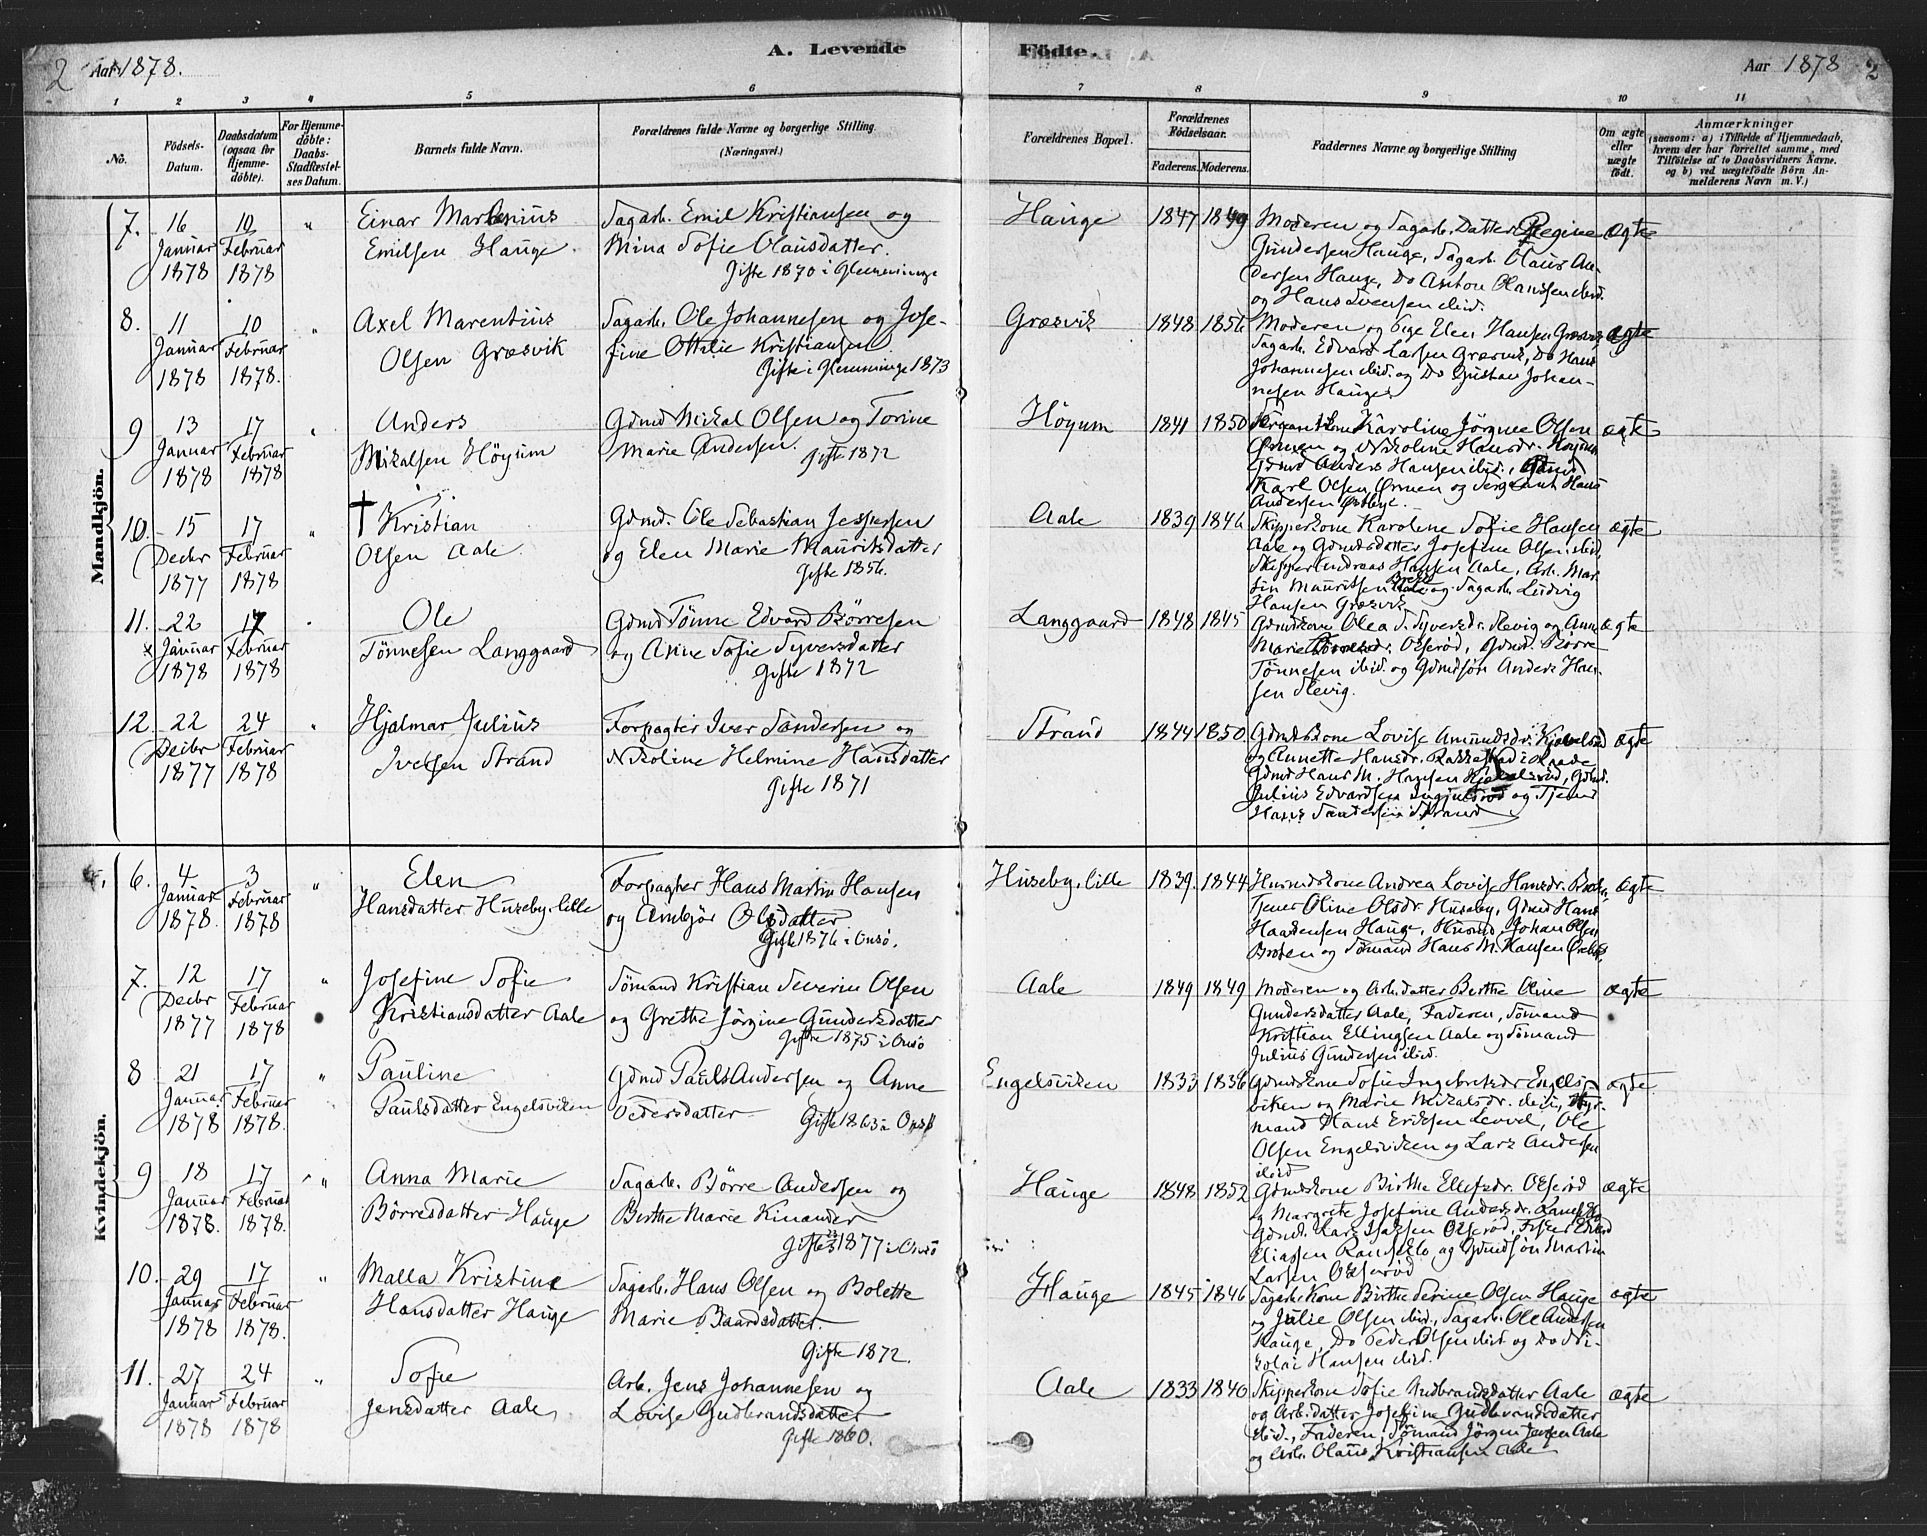 2 Aar 1878. A. Levende Födte. Aar 1878 2
1 2 3 4 5 6 7 8 9 10 11
No.
Födsels-
Datum.
Daabsdatum
(ogsaa for
Hjemme-
döbte).
For Hjemme-
döbte:
Daabs-
Stadfæstel-
ses Datum.
Barnets fulde Navn.
Forældrenes fulde Navne og borgerlige Stilling.
(Næringsvei.)
Forældrenes Bopæl.
Forældrenes
Födselsaar.
Faderens. Moderens.
Faddernes Navne og borgerlige Stilling
Om ægte
eller
uægte
födt.
Anmærkninger
(saasom: a) i Tilfælde af Hjemmedaab,
hvem der har forrettet samme, med
Tilföielse af to Daabsvidners Navne.
og b) ved uægtefödte Börn An-
melderens Navn m. V.)
Mandkjön.
7. 16 Januar 1878
10 Februar 1878
"
Einar Martenius
Emilsen Hauge
Sagarb. Emil Kristiansen og
Mina Sofie Olausdatter.
Gifte 1870 i Glemminge
Hauge
1847 1849
Moderen og Sagarb. Datter Regine
Gundersen Hauge, Sagarb. Olaus An-
dersen Hauge, Do Anton Olaussen ibid.
og Hans Svensen ibid.
ægte
8. 11 Januar 1878
10 Februar 1878.
"
Axel Marentius
Olsen Græsvik
Sagarb. Ole Johannesen og Jose-
fine Ottilie Kristiansen
Gifte i Glemminge 1873
Græsvik
1848 1856
Moderen og Pige Elen Hansen Græsvik
Sagarb. Edvard Larsen Græsvik, Do Hans
Johannesen ibid. og Do Gustav Johan-
nesen Hauge
ægte
9 13 Januar 1878
17 Februar 1878
Anders
Mikalsen Höyum
Gdmd Mikal Olsen og Torine
Marie Andersen. Gifte 1872
Höyum
1841 1850
Sergeantkone Karoline Jörgine Olsen
Ørmen og Nikoline Hansdr. Höyum
Gdmd Anders Hansen ibid., Gdmd
Karl Olsen Ørmen og Sergeant Hans
Andersen Østbye.
ægte
10. 15 Decbr 1877
17 Februar 1878
"
† Kristian
Olsen Aale
Gdmd. Ole Sebastian Jespersen
og Elen Marie Mauritsdatter
Gifte 1856.
Aale
1839 1846
Skipperkone Karoline Sofie Hansen
Aale og Gdmdsdatter Josefine Olsen ibid,
Skipper Andreas Hansen Aale, Arb. Mar-
tin Mauritsen og Sagarb. Ludvig
Hansen Græsvik
ægte
11. 22 Januar 1878
17 Februar 1878
Ole
Tönnesen Langgaard
Gdmd Tönne Edvard Börresen
og Anne Sofie Syversdatter
Gifte 1872
Langgaard
1848 1845
Gdmdkone Olea S. Syversdr. Slevig og Anne
Marie Oldsröd, Gdmd. Börre
Tönnesen ibid. og Gdmdsön Anders Han-
sen Slevig.
ægte
12. 22 Decbr 1877
24 Februar 1878
"
Hjalmar Julius
Iversen Strand
Forpagter Iver Sandersen og
Nikoline Helmine Hansdatter
Gifte 1871
Strand
1844 1850.
Gdmdskone Lovise Amundsdr. Kjølelsröd
og Annette Hansdr. Rakkestad i Raade
Gdmd Hans M. Hansen, Gdmd.
Julius Edvardsen Ingjulsröd og Tjener
Hans Sandersen Strand
ægte
Kvindekjön.
6. 4 Januar 1878.
3 Februar 1878
"
Elen
Hansdatter Huseby lille
Forpagter Hans Martin Hansen
og Ambjör Olsdatter
Gifte 1876 i Onsö.
Huseby, lille
1839. 1844
Husmdskone Andrea Lovise Hansdr. Braaten
Tjener Oline Olsdr. Huseby, Gdmd Hans
Haagensen Hauge, Husmd Johan Olsen
Braaten og Sömand Hans M. Hansen
ægte
7. 12 Decbr 1877
17 Februar 1878
"
Josefine Sofie
Kristiansdatter Aale
Sömand Kristian Severin Olsen
og Grethe Jörgine Gundersdatter
Gifte 1875 i Onsö
Aale
1849 1849
Moderen og Arb.datter Berthe Oline
Gundersdatter Aale, Faderen, Sömand
Kristian Ellingsen Aale og Sömand
Julius Gundersen ibid.
ægte
8 21 Januar 1878
17 Februar 1878.
"
Pauline
Paulsdatter Engelsviken
Gdmd Pauls Andersen og Anne
Pedersdatter Gifte 1863 i Onsö
Engelsviken
1833 1836
Gdmdskone Sofie Ingebretsdr Engels-
viken og Marie Mikalsdr. ibid,
mand Hans Eriksen Levvel, Ole
Olsen Engelsviken og Lars Andersen
ibid
ægte
9 18 Januar 1878.
17 Februar 1878.
"
Anna Marie
Börresdatter Hauge
Sagarb. Börre Andersen og
Berthe Marie Kinander
Gifte 1877 i Onsö
Hauge
1848 1852
Gdmdskone Birthe Ellefsdr. Oldsröd
og Margrete Josefine Andersdr.
Gdmd. Lars Isaksen Oldsröd, Fisker Edvard
Eliassen og Gdmdsön Martin
Larsen Oldsröd
ægte
10. 29 Januar 1878
17 Februar 1878.
"
Malla Kristine
Hansdatter Hauge
Sagarb. Hans Olsen og Bolette
Marie Baardsdatter.
Gifte 1872.
Hauge
1845 1846
Sagarb. Kone Birthe Serine Olsen Hauge
og Julie Olsen ibid., Sagarb. Ole Andersen
Hauge, Do Peder Olsen ibid og Do Ni-
kolai Hansen ibid.
ægte
11. 27 Januar 1878
24 Februar 1878
"
Sofie
Jensdatter Aale
Arb. Jens Johannesen og
Lovise Gudbrandsdatter
Gifte 1860.
Aale
1833 1840
Skipperkone Sofie Gudbrandsdatter Aale
og Arb.datter Josefine Gudbrandsdatter
ibid., Faderen, Sömand Jörgen Jensen Aale
og Arb. Olaus Kristiansen Aale
ægte